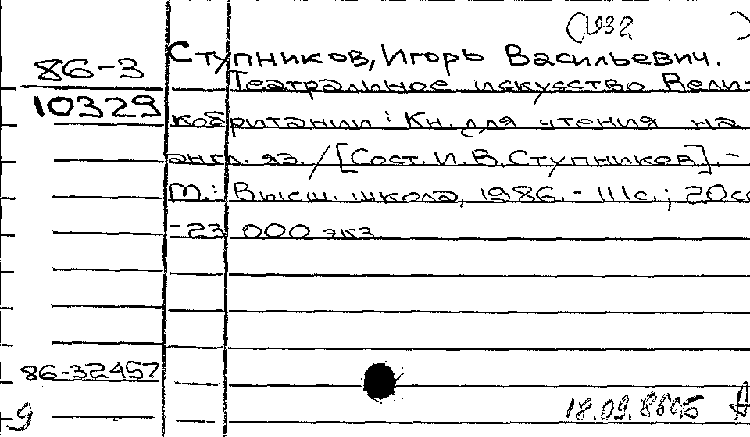 86-3
10329
Ступников, Игорь Васильевич.
Театральное искусство Вели-
кобритании : Кн. для чтения на
англ. яз. / [Сост. И. В. Ступников]. –
М.: Высш. школа, 1986. – 111с.; 20см
– 23 000 экз.
86-32457
9
18.09.86